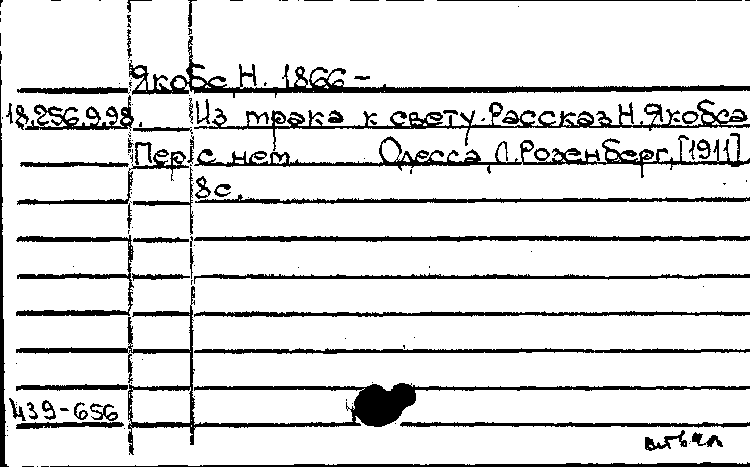 Якобс, Н. 1866 –
18.256.9.98. Из мрака к свету. Рассказ Н. Якобса
Пер. с нем. Одесса, Л. Розенберг, [1911]
8 с.
439-656